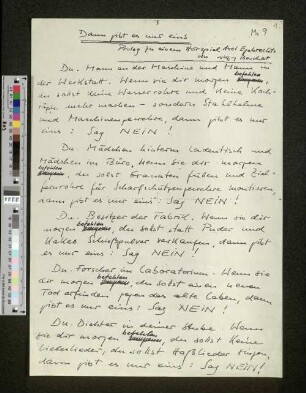 Dann gibt es nur eins
Du. Mann an der Maschine und Mann in
der Werkstatt. Wenn sie dir morgen befehlen
du sollst keine Wasserrohre und keine Koch-
töpfe mehr machen – sondern Stahlhelme
und Maschinengewehre, dann gibt es nur
eins: Sag NEIN!
Du. Mädchen hinterm Ladentisch und
Mädchen im Büro. Wenn sie dir morgen
befehlen, du sollst Granaten füllen und Ziel-
fernrohre für Scharfschützengewehre montieren,
dann gibt es nur eins: Sag NEIN!
Du. Besitzer der Fabrik. Wenn sie dir
morgen befehlen, du sollst statt Puder und
Kakao Schießpulver verkaufen, dann gibt
es nur eins: Sag NEIN!
Du. Forscher im Laboratorium. Wenn sie
dir morgen befehlen, du sollst einen neuen
Tod erfinden gegen das alte Leben, dann
gibt es nur eins: Sag NEIN!
Du. Dichter in deiner Stube. Wenn
sie dir morgen befehlen, du sollst keine
Liebeslieder, du sollst Haßlieder singen,
dann gibt es nur eins: Sag NEIN!